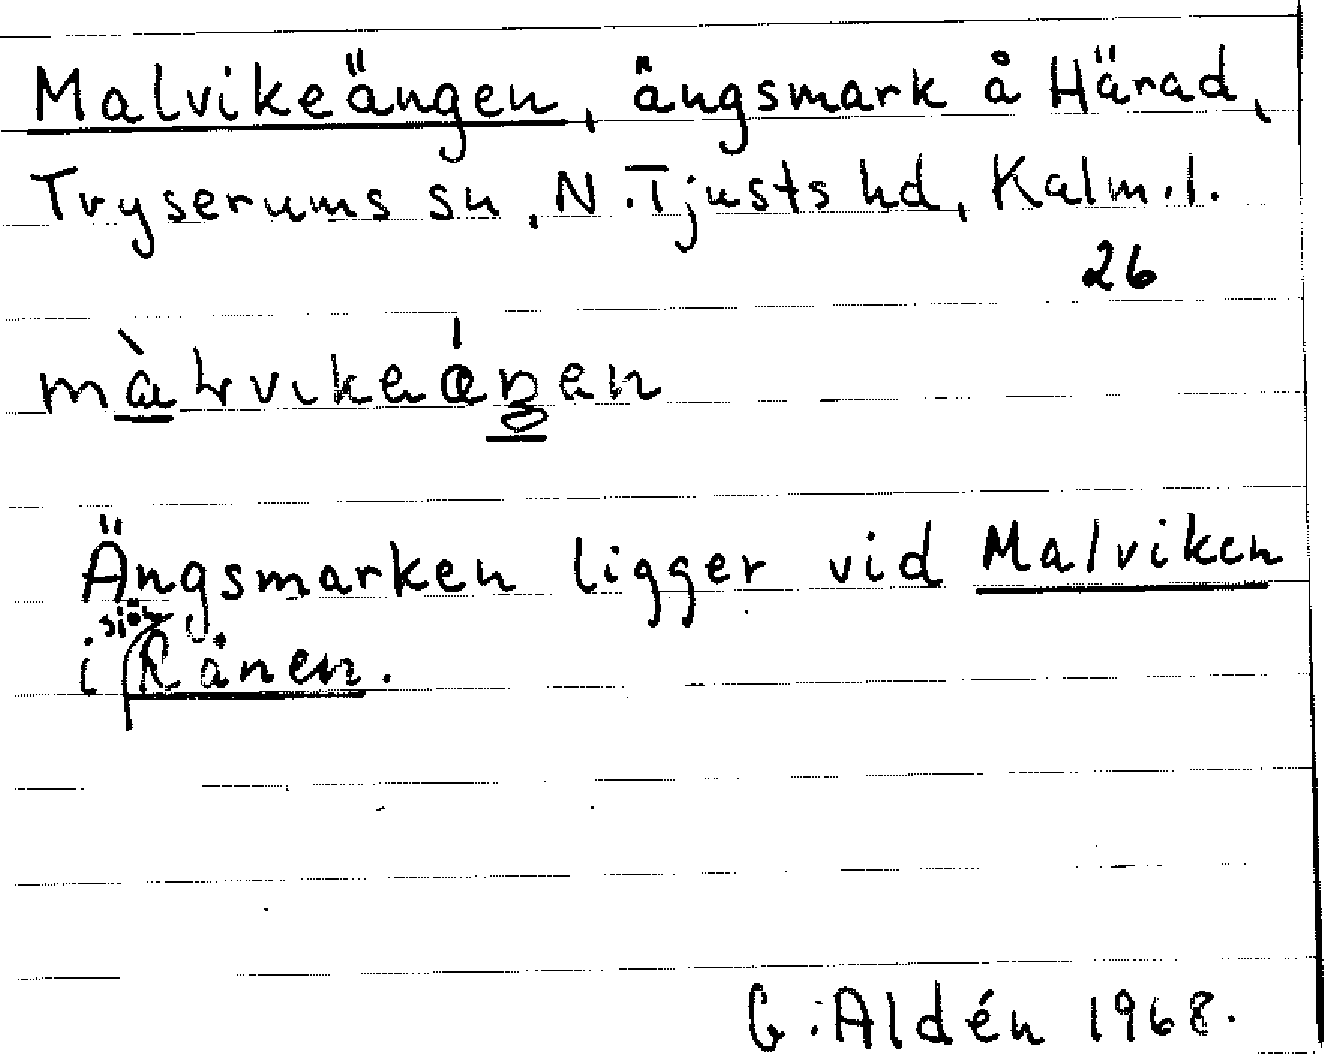 Malvikeängen, ängsmark å Härad,
Tryserums sn, N. Tjusts hd, Kalm. l.
26
Ängsmarken ligger vid Malviken
i sjön Rånen.
G. Aldén 1968.